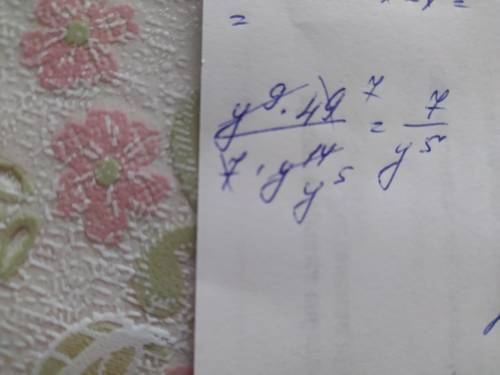 =
y⁹ · 49 7
7 · y¹⁴ = 7/y⁵
y⁵